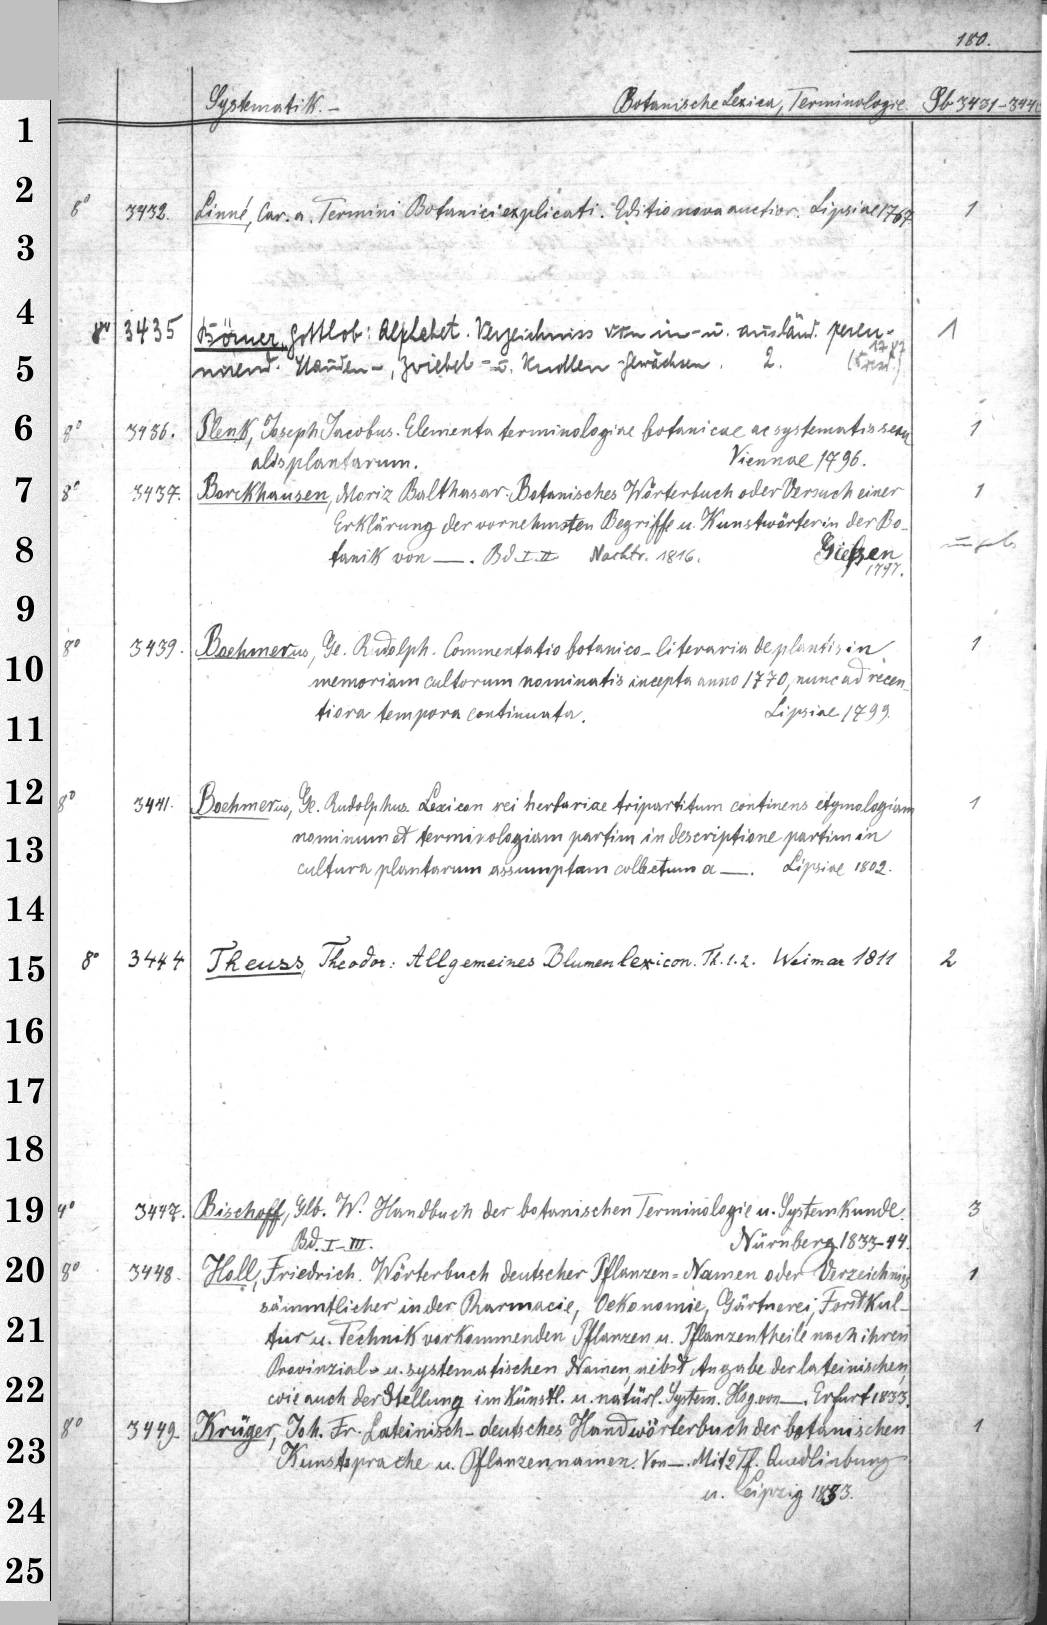 180.
Systematik.- Botanische Lexica, Terminologie. Pb 3431-344
1
2
8° 3432. Linné, Car. a. Termini Botanici explicati. Editio nova auctior. Lipsiae 1767. 1
3
4
3435 Börner, Gottlob: Alphabet. Verzeichniss von in- u. ausländ. peren- 1
5
nirend. Stauden-, Zwiebel- u. Knollen-Gewächsen. 2.
6
8° 3436. Plenk, Joseph Jacobus. Elementa terminologiae botanicae ac systematis sexu 1
alis plantarum. Viennae 1796.
7
8° 3437. Borckhausen, Moriz Balthasar. Botanisches Wörterbuch oder Versuch einer 1
Erklärung der vornehmsten Begriffe u. Kunstwörter in der Bo-
8
tanik von —. Bd. I. II Nachtr. 1816. Gießen
1797.
9
8° 3439. Boehmerus, Ge. Rudolph. Commentatio botanico-literaria de plantis in 1
10
memoriam cultorum nominatis incepta anno 1770, nunc ad recen-
11
tiora tempora continuata. Lipsiae 1799.
12
8° 3441. Boehmerus, Ge. Rudolphus. Lexicon rei herbariae tripartitum continens etymologiam 1
13
nominum et terminologiam partim in descriptione partim in
cultura plantarum assumptam collectum a —. Lipsiae 1802.
14
15
8° 3444 Theuss, Theodor: Allgemeines Blumenlexicon. Th. 1.2. Weimar 1811 2
16
17
18
19
4° 3447. Bischoff, Glb. W. Handbuch der botanischen Terminologie u. Systemkunde. 3
Bd. I-III. Nürnberg 1833-44.
20
8° 3448. Holl, Friedrich. Wörterbuch deutscher Pflanzen-Namen oder Verzeichniss 1
sämmtlicher in der Pharmacie, Oekonomie, Gärtnerei, Forstkul-
21
tur u. Technik vorkommenden Pflanzen u. Pflanzentheile nach ihren
Provinzial- u. systematischen Namen, nebst Angabe der lateinischen,
22
wie auch der Stellung im künstl. u. natürl. System. Hsg. von —. Erfurt 1833.
23
8° 3449. Krüger, Joh. Fr. Lateinisch-deutsches Handwörterbuch der botanischen 1
Kunstsprache u. Pflanzennamen. Von —. Mit 2 Tf. Quedlinburg
24
u. Leipzig 1833.
25